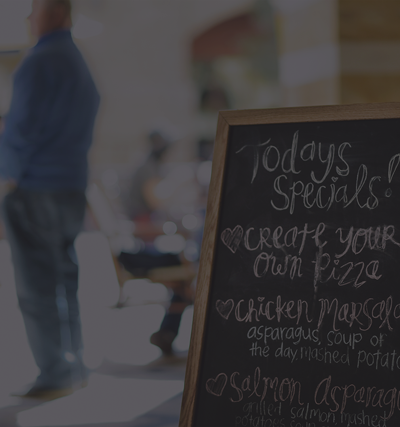 Todays
Specials!
create your
own pizza
chicken Marsala
asparagus, soup of
the day, mashed potato
salmon, asparagu
grilled salmon, mashed